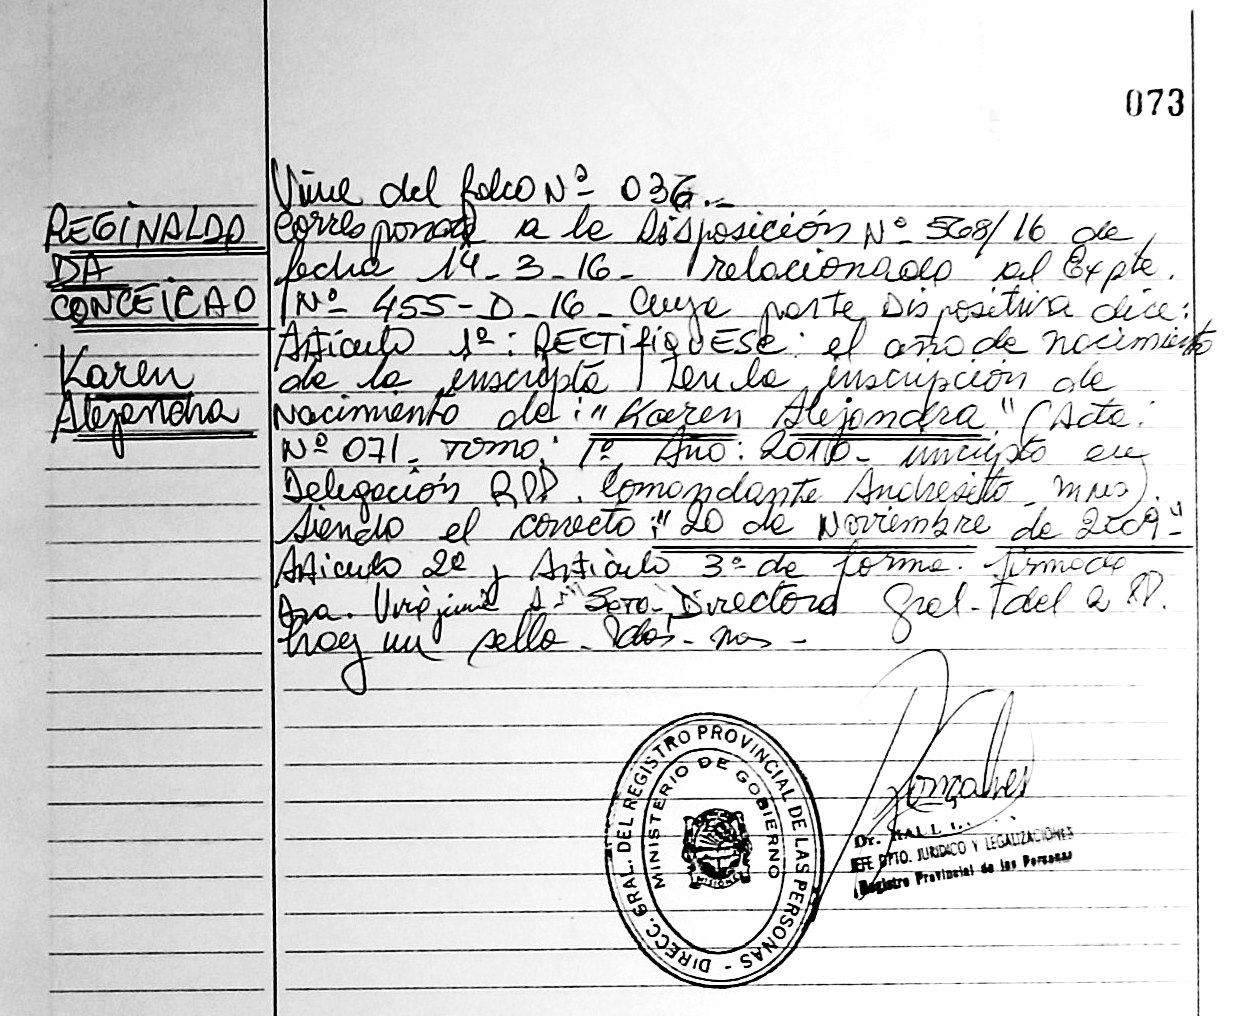 073
Viene del folio Nº 036.-
REGINALDO
DA
CONCEICAO
Karen
Alejandra
Corresponde a la Disposición Nº 568/16 de
fecha 14-3-16- relacionado al Expte.
Nº 455-D-16- Cuya parte Dispositiva dice:
Artículo 1º: RECTIFIQUESE: el año de nacimiento
de la inscripta en la inscripción de
Nacimiento de: "Karen Alejandra" (Acta:
Nº 071- Tomo: 1º Año: 2010- inscripto en
Delegación RPP. Comandante Andresito- Mnes).
siendo el correcto: "20 de Noviembre de 2009"-
Artículo 2º y Artículo 3º de forma. firmado
Dra. Virginia Soto- Directora Gral- del RP.
hay un sello- Pdas- Mnes-
DIRECC. GRAL. DEL REGISTRO PROVINCIAL DE LAS PERSONAS -
MINISTERIO DE GOBIERNO
MISIONES
Dr.
JEFE DPTO. JURIDICO Y LEGALIZACIONES
Registro Provincial de las Personas